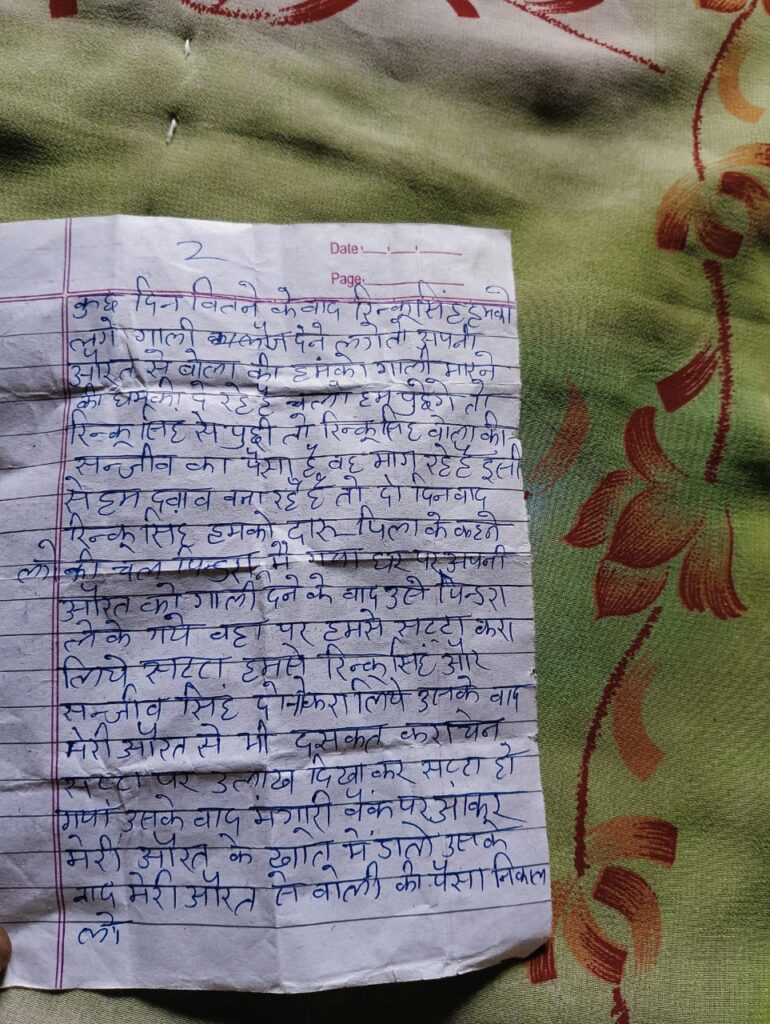 2
Date
Page
कुछ दिन वितने के वाद रिन्कू सिंह हमको
लगे गाली देने लगे तो अपनी
औरत से बोला की हमको गाली मारने
की धमकी दे रहे है चलो हम पुछेगे तो
रिन्कू सिंह से पुछी तो रिन्कू सिंह वोला की
सन्जीव का पैसा है वह माग रहे है इसी
से हम दवाव वना रहे है तो दो दिन वाद
रिन्कू सिंह हमको दारू पिला के कहने
लगे की चल पिन्डरा मै गया घर पर अपनी
औरत को गाली देने के वाद उसे पिन्डरा
लेके गये वहा पर हमसे सट्टा करा
लिये सट्टा हमसे रिन्कू सिंह और
सन्जीव सिंह दोनो करा लिये उसके वाद
मेरी औरत से भी दसकत कराये
सट्टा पर 3 लाख दिखा कर सट्टा हो
गया उसके वाद मंगारी वैंक पर आकर
मेरी औरत के खाते में डाले उसके
वाद मेरी औरत से वोली की पैसा निकाल
लो